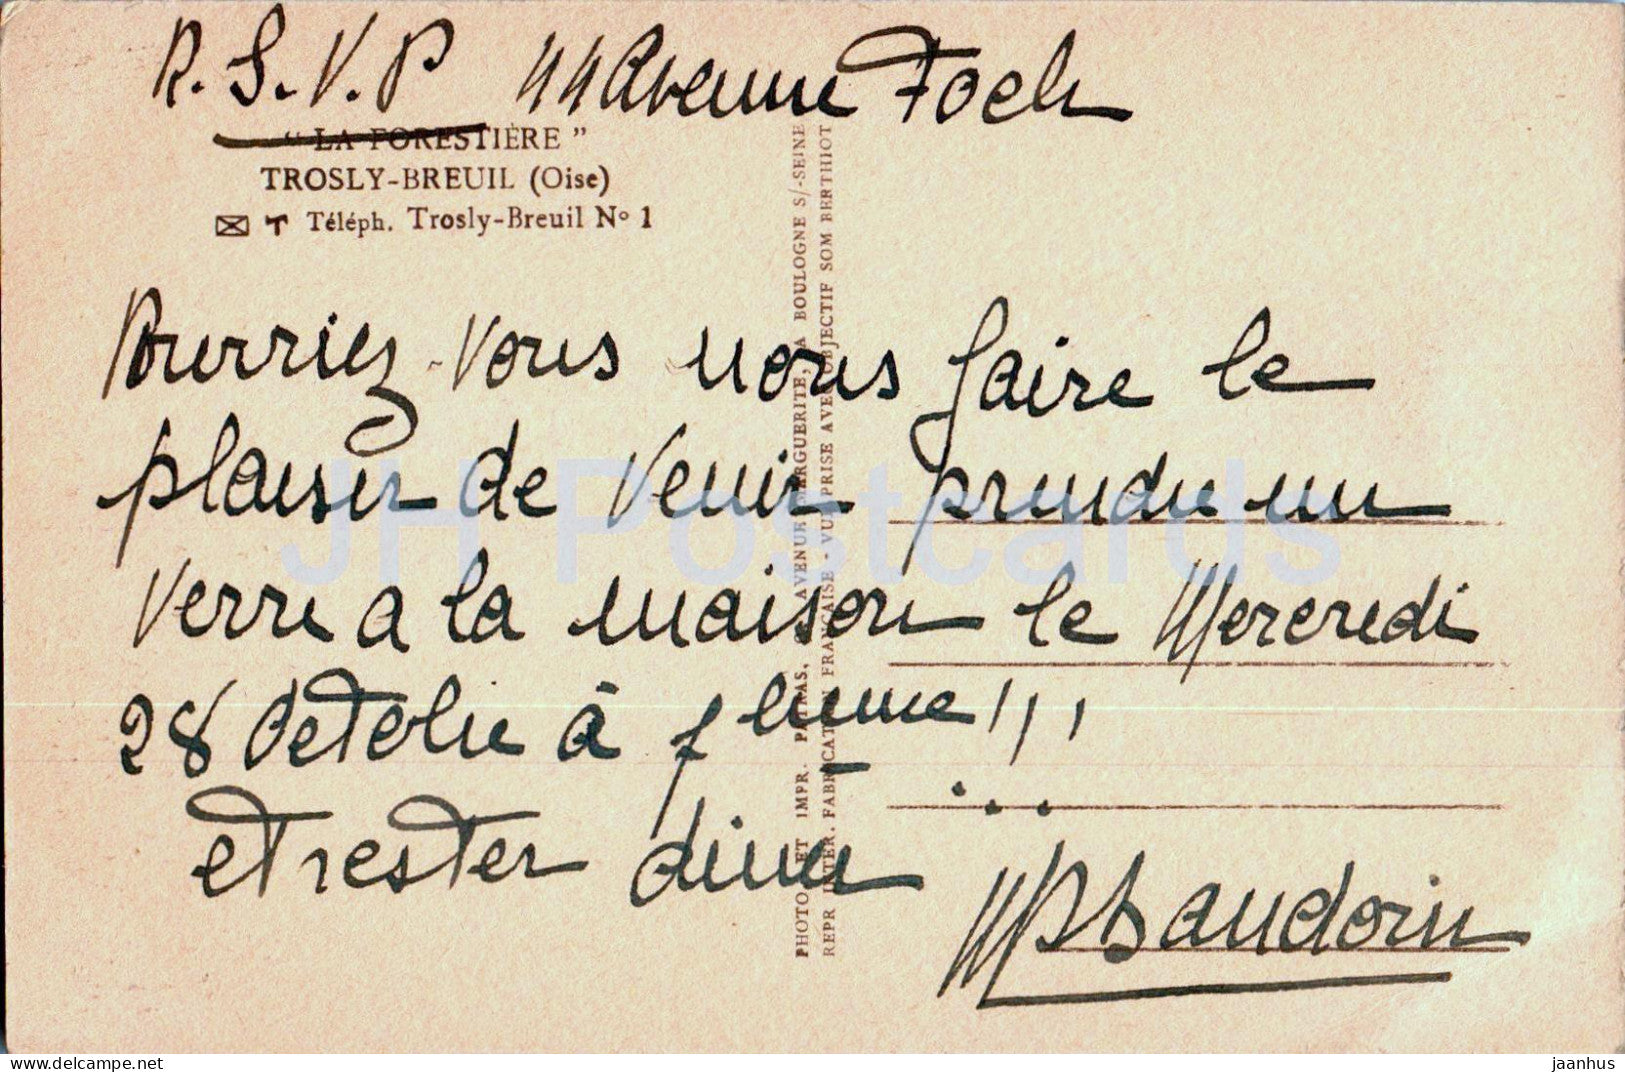 R.S.V.P 44 Avenue Foch
" LA FORESTIÈRE "
TROSLY-BREUIL (Oise)
Téléph. Trosly-Breuil No 1
Pourriez-Vous nous faire le
plaisir de Venir prendre un
Verre a la maison le Mercredi
28 Octobre à 7 heure !!!
et rester diner
MP Baudoin
PHOTO ET IMPR. PATRAS, AVENUE MARGUERITE, A BOULOGNE S/-SEINE
REPR INTER. FABRICATION FRANÇAISE - VUE PRISE AVEC OBJECTIF SOM BERTHIOT
JH Postcards
HIPPOSTCARD.NET
jaanhus